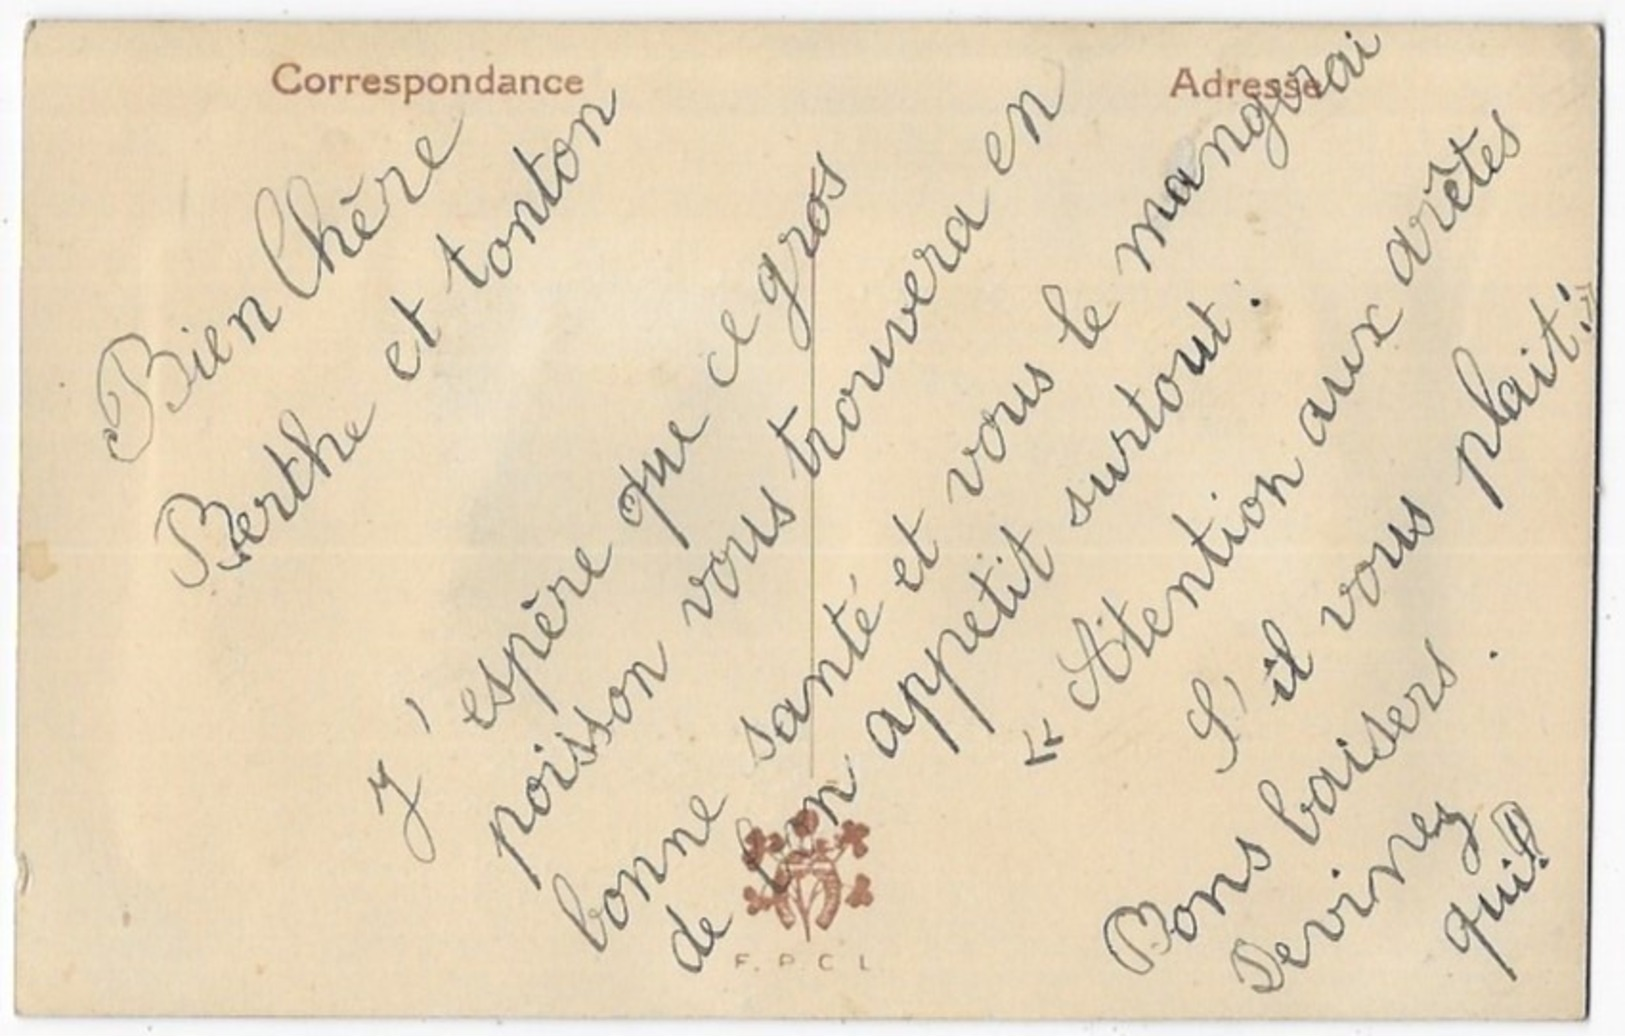 Correspondance
Adresse
Bien Chère
Berthe et tonton
J'espère que ce gros
poisson vous trouvera en
bonne santé et vous le mangerai
de bon appetit surtout.
« Attention aux arêtes
S'il vous plait. »
Bons baisers.
Devinez
qui!
F. P. C. L.